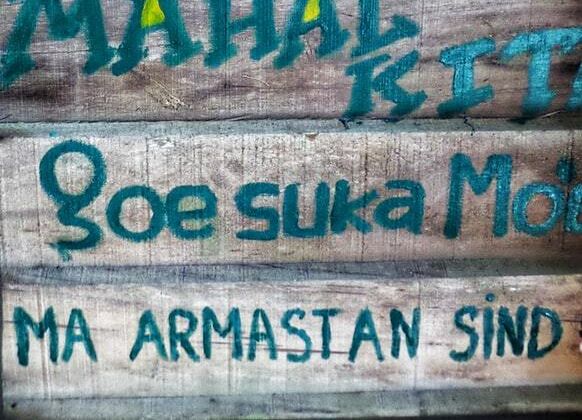 MAHAL KITA
goe suka Moi
MA ARMASTAN SIND